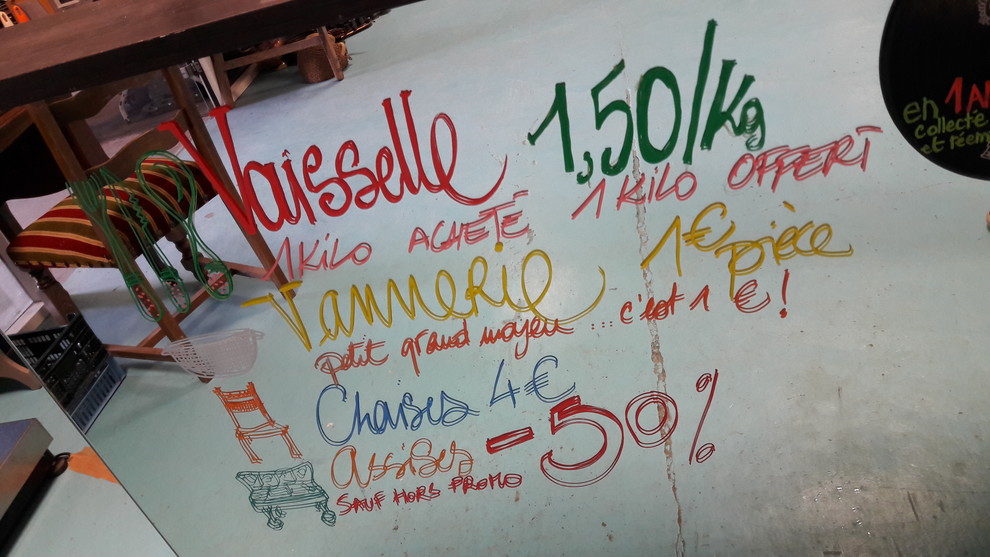 Vaisselle 1,50/Kg
1 KILO ACHETÉ 1 KILO OFFERT
Vannerie 1€ pièce
petit grand moyen ... c'est 1 € !
Chaises 4€
assises -50%
SAUF HORS PROMO
en 1 AN
collecte
et réem